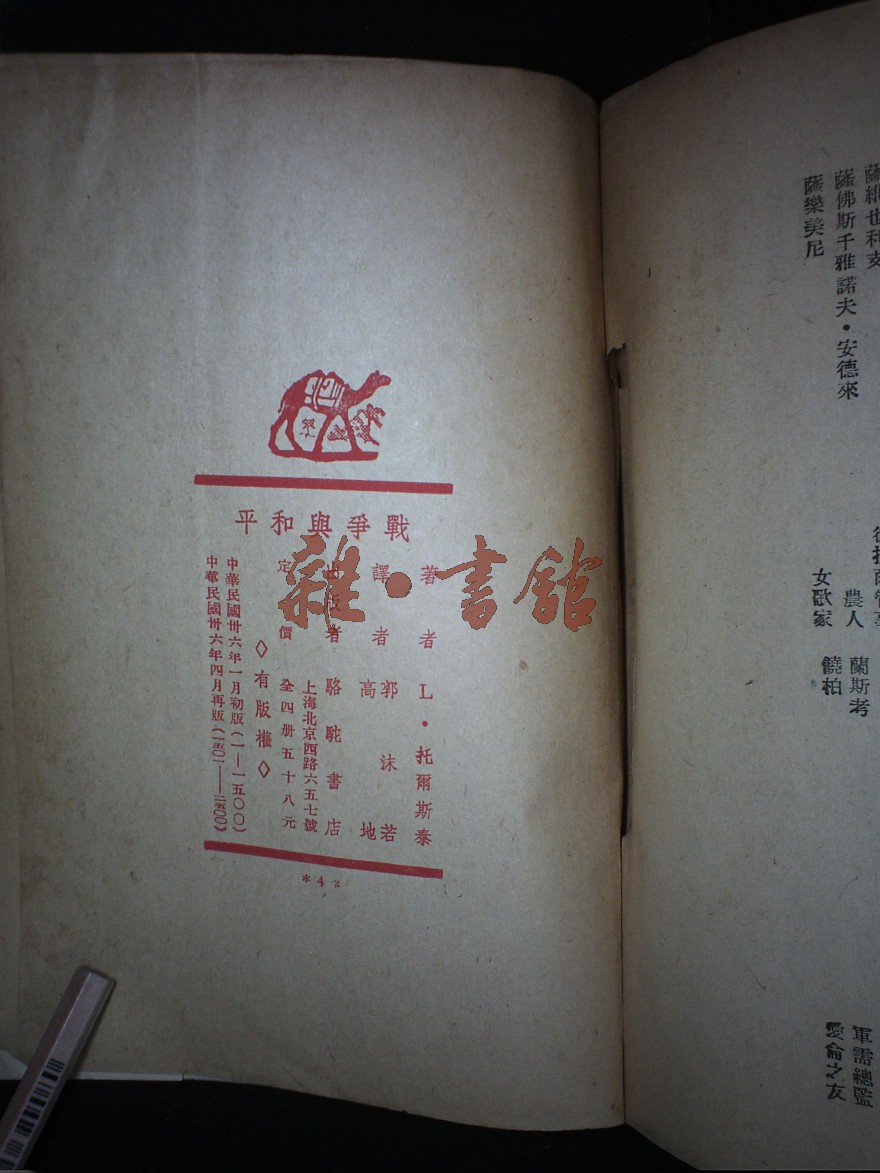 薩維也利支
薩佛斯千雅諾夫・安德來
薩樂美尼
農人 蘭斯考
女歐家 饒柏
軍需總監
愛侖之友
戰爭與和平
著者 L・托爾斯泰
譯者 郭沫若
高地
出版者 駱駝書店
上海北京西路六五七號
定價 全四册五十八元
◇有版權◇
中華民國卅六年一月初版(一—一五〇〇)
中華民國卅六年四月再版(一五〇一——三五〇〇)
*4*
雜・書館